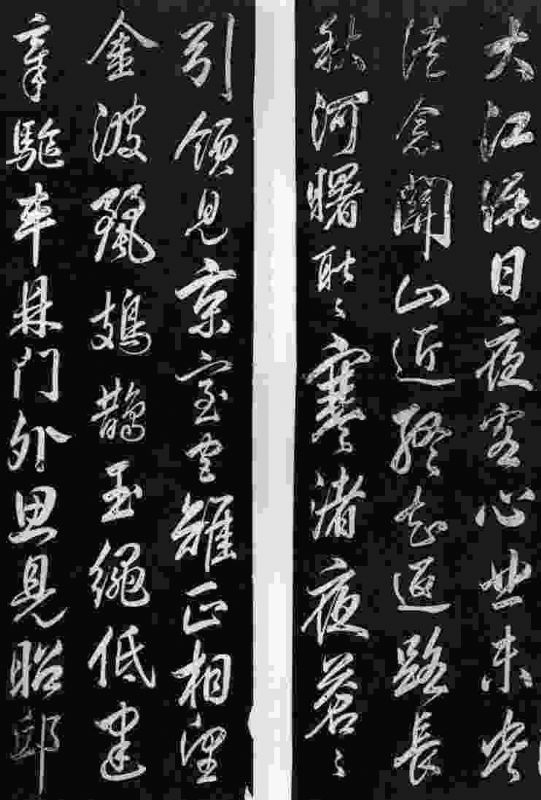 大江流日夜客心悲未央
徒念關山近終知返路長
秋河曙耿〻寒渚夜蒼〻
引領見京室宮雉正相望
金波麗鳷鵲玉繩低建
章驅車鼎門外思見昭邱